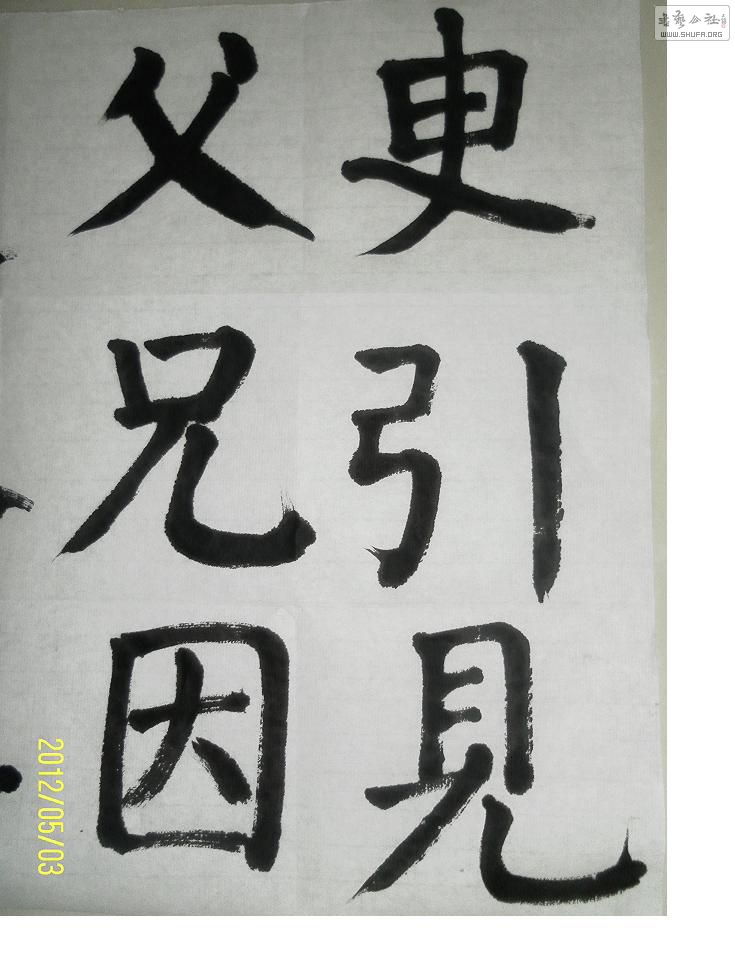 更引見
父兄因
2012/05/03
书艺公社
WWW.SHUFA.ORG